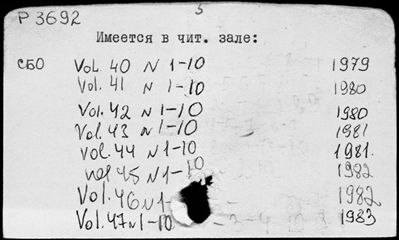 Р 3692
5
Имеется в чит. зале:
СБО Vol. 40 N 1-10 1979
Vol. 41 N 1-10 1980
Vol. 42 N 1-10 1980
Vol. 43 N 1-10 1981
Vol. 44 N 1-10 1981.
Vol 45 N 1-10 1982
Vol. 46 N 1- 1982
Vol. 47 N 1-10 1983